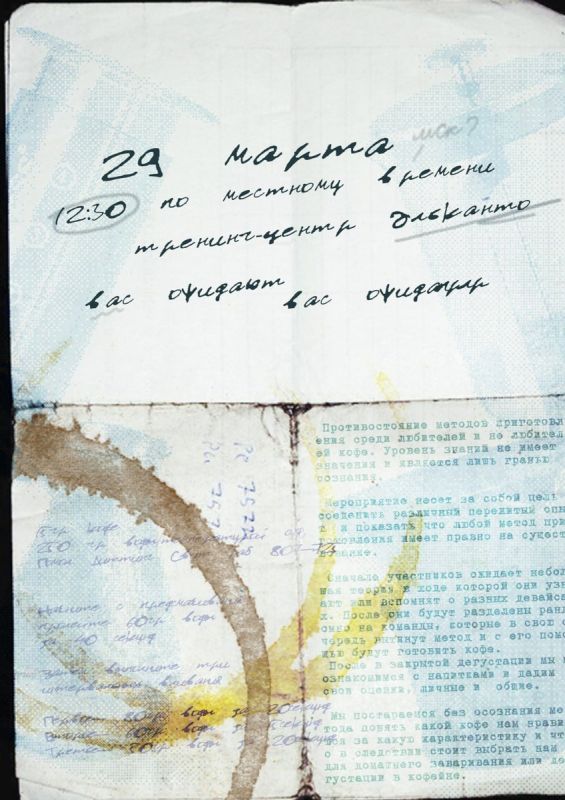 29 марта
мск?
12:30 по местному времени
тренинг-центр Эльканто
вас ожидают вас ожидают
Противостояние методов приготовл
ения среди любителей и не любител
ей кофе. Уровень знаний не имеет
значения и является лишь гранью
сознания.
Мероприятие несет за собой цель
соединить различный пережитый опы
т и показать что любой метод приг
отовления имеет право на сущест
вование.
Сначала участников ожидает небол
шая теория в ходе которой они узн
ают или вспомнят о разных девайса
х. После они будут разделены ранд
омно на команды, которые в свою о
чередь вытянут метод и с его помо
щью будут готовить кофе.
После в закрытой дегустации мы
ознакомимся с напитками и дадим
свои оценки, личные и общие.
Мы постараемся без осознания ме
тода понять какой кофе нам нрави
тся за какую характеристику и чт
о в следствии стоит выбрать нам
для домашнего заваривания или де
густации в кофейне.
60гр воды
30 секунд
Затем вливаем три
Первые 80гр воды за 20секунд
80гр воды за секунд
80гр воды за 20секунд